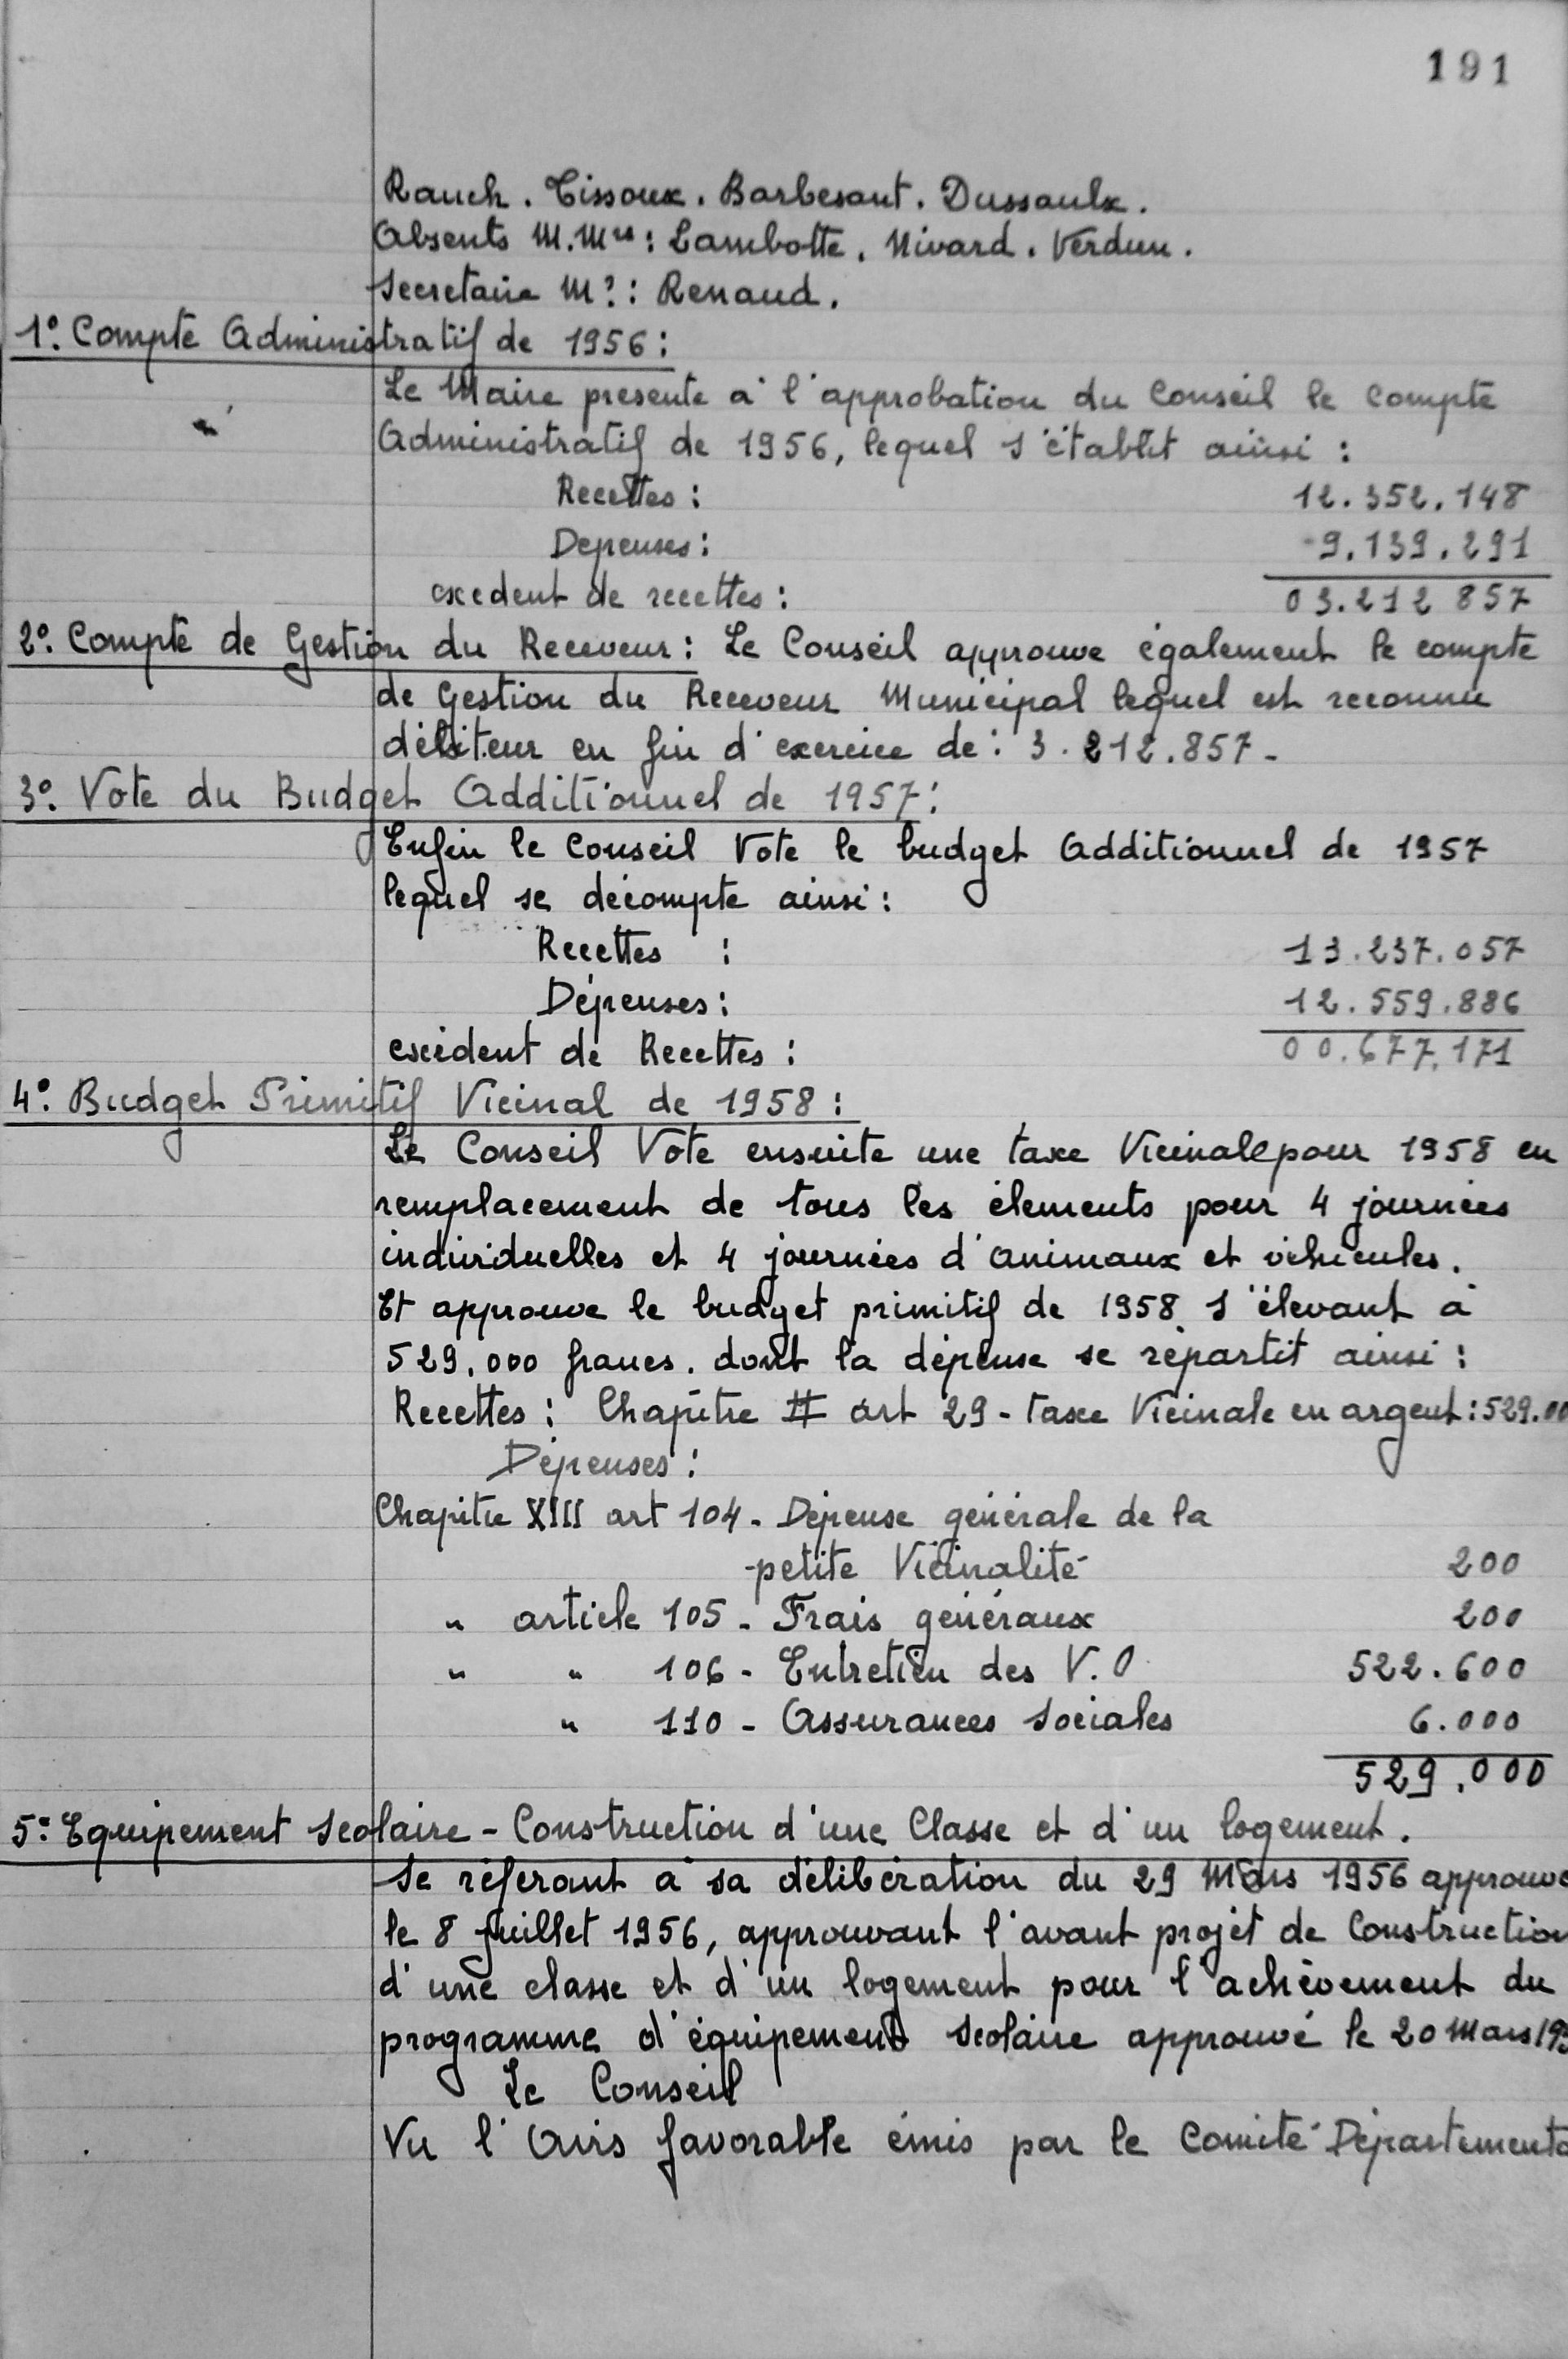 191
Rauch. Tissoux. Barbesant. Dussaulx.
Absents M.Mrs: Lambotte. Nivard. Verdun.
Secretaire Mr: Renaud.
1º. Compte Administratif de 1956:
Le Maire presente à l'approbation du Conseil le Compte
Administratif de 1956, lequel s'établit ainsi :
Recettes : 12.352.148
Depenses : 9.139.291
excedent de recettes : 03.212 857
2º. Compte de Gestion du Receveur : Le Conseil approuve également le compte
de Gestion du Receveur Municipal lequel est reconnu
débiteur en fin d'exercice de : 3.212.857-
3º. Vote du Budget Additionnel de 1957 :
Enfin le Conseil Vote le budget Additionnel de 1957
lequel se décompte ainsi :
Recettes : 13.237.057
Dépenses : 12.559.886
excédent de Recettes : 00.677.171
4º. Budget Primitif Vicinal de 1958 :
Le Conseil Vote ensuite une taxe Vicinale pour 1958 en
remplacement de tous les élements pour 4 journées
individuelles et 4 journées d'animaux et véhicules.
Et approuve le budget primitif de 1958 s'élevant à
529.000 francs. dont la dépense se répartit ainsi :
Recettes : Chapitre II art 29 - taxe Vicinale en argent : 529.00
Dépenses :
Chapitre XIII art 104 - Dépense générale de la
petite Vicinalité 200
" article 105 - Frais généraux 200
" " 106 - Entretien des V.O 522.600
" 110 - Assurances Sociales 6.000
529.000
5º. Equipement Scolaire - Construction d'une Classe et d'un logement.
Se réferant à sa délibération du 29 Mars 1956 approuve
le 8 Juillet 1956, approuvant l'avant projet de Construction
d'une classe et d'un logement pour l'achèvement du
programme d'équipement Scolaire approuvé le 20 Mars 195
Le Conseil
Vu l'Avis favorable émis par le Comité Départementa